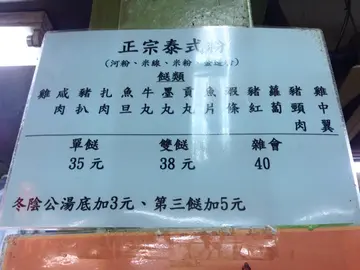 正宗泰式粉
(河粉、米線、米粉、
餸類
雞咸豬扎魚牛墨貢魚蝦豬蘿豬雞
肉肉扒肉旦丸丸丸片條紅蔔頸中
肉翼
單餸 雙餸 雜會
35元 38元 40
冬陰公湯底加3元、第三餸加5元